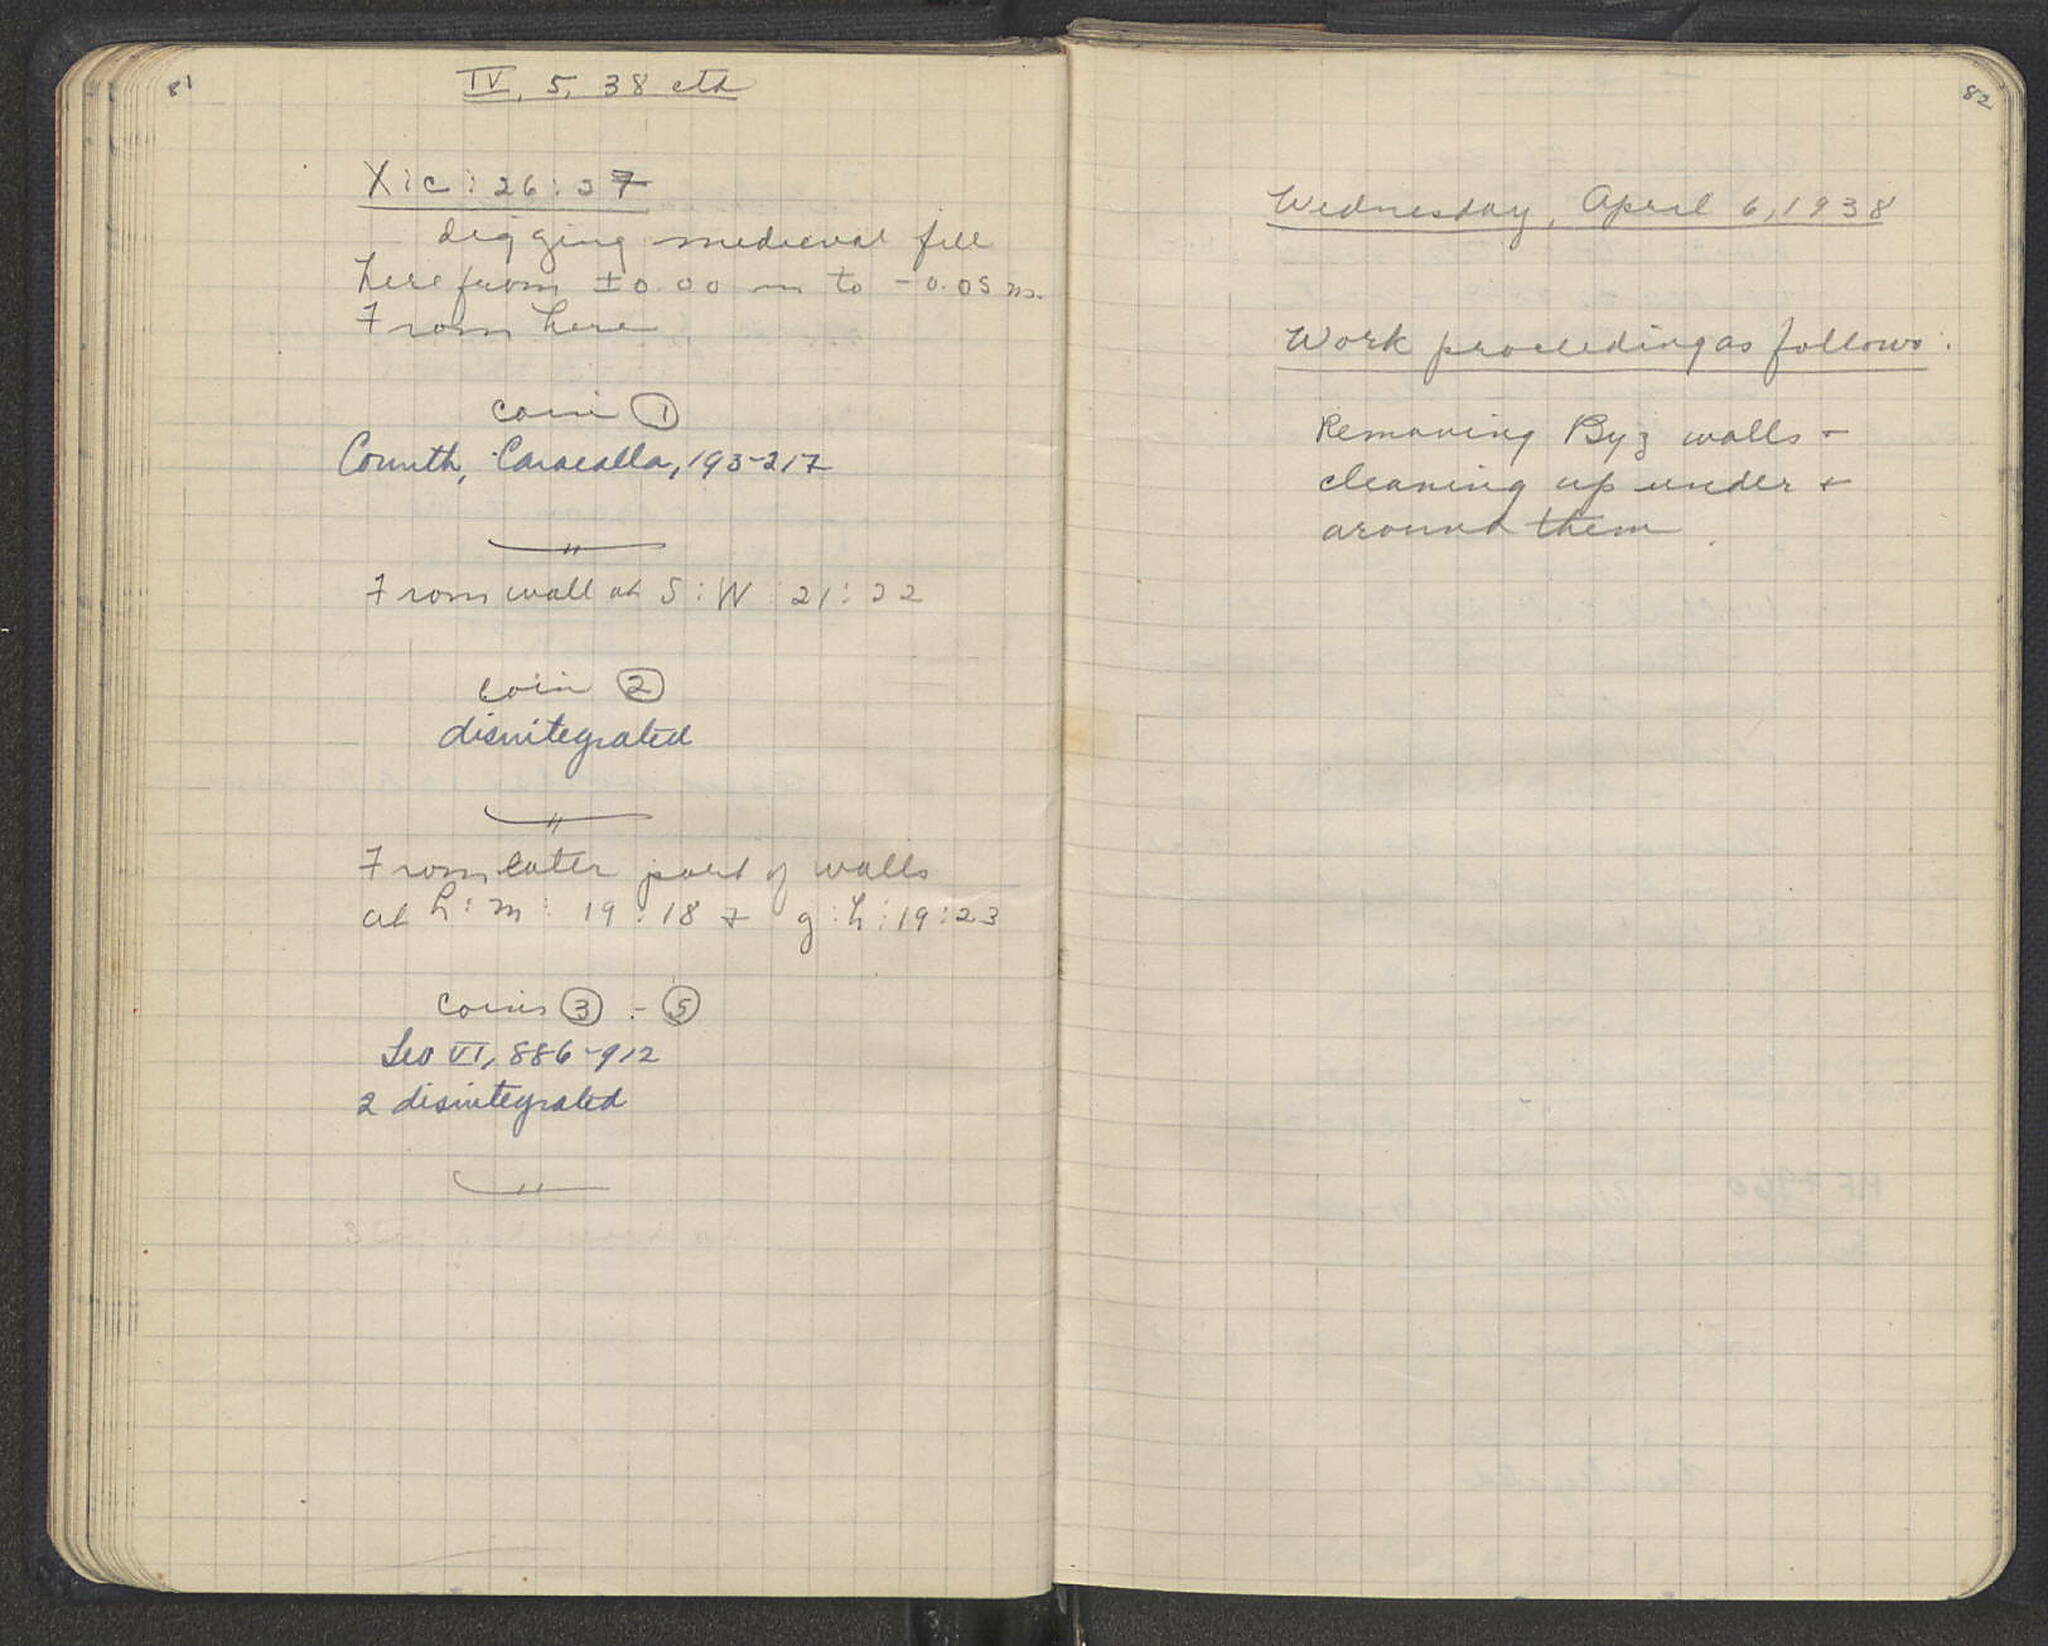 81
IV, 5, 38 ctd
X:C:26:27
digging medieval fill
here from ±0.00 m to -0.05 m.
From here
coin 1
Corinth, Caracalla, 193-217
From wall at S:W:21:22
coin 2
disintegrated
From later part of walls
at h:m:19:18 + g:h:19:23
coins 3 - 5
Leo VI, 886-912
2 disintegrated
82
Wednesday, April 6, 1938
Work proceeding as follows:
Removing Byz walls +
cleaning up under +
around them.